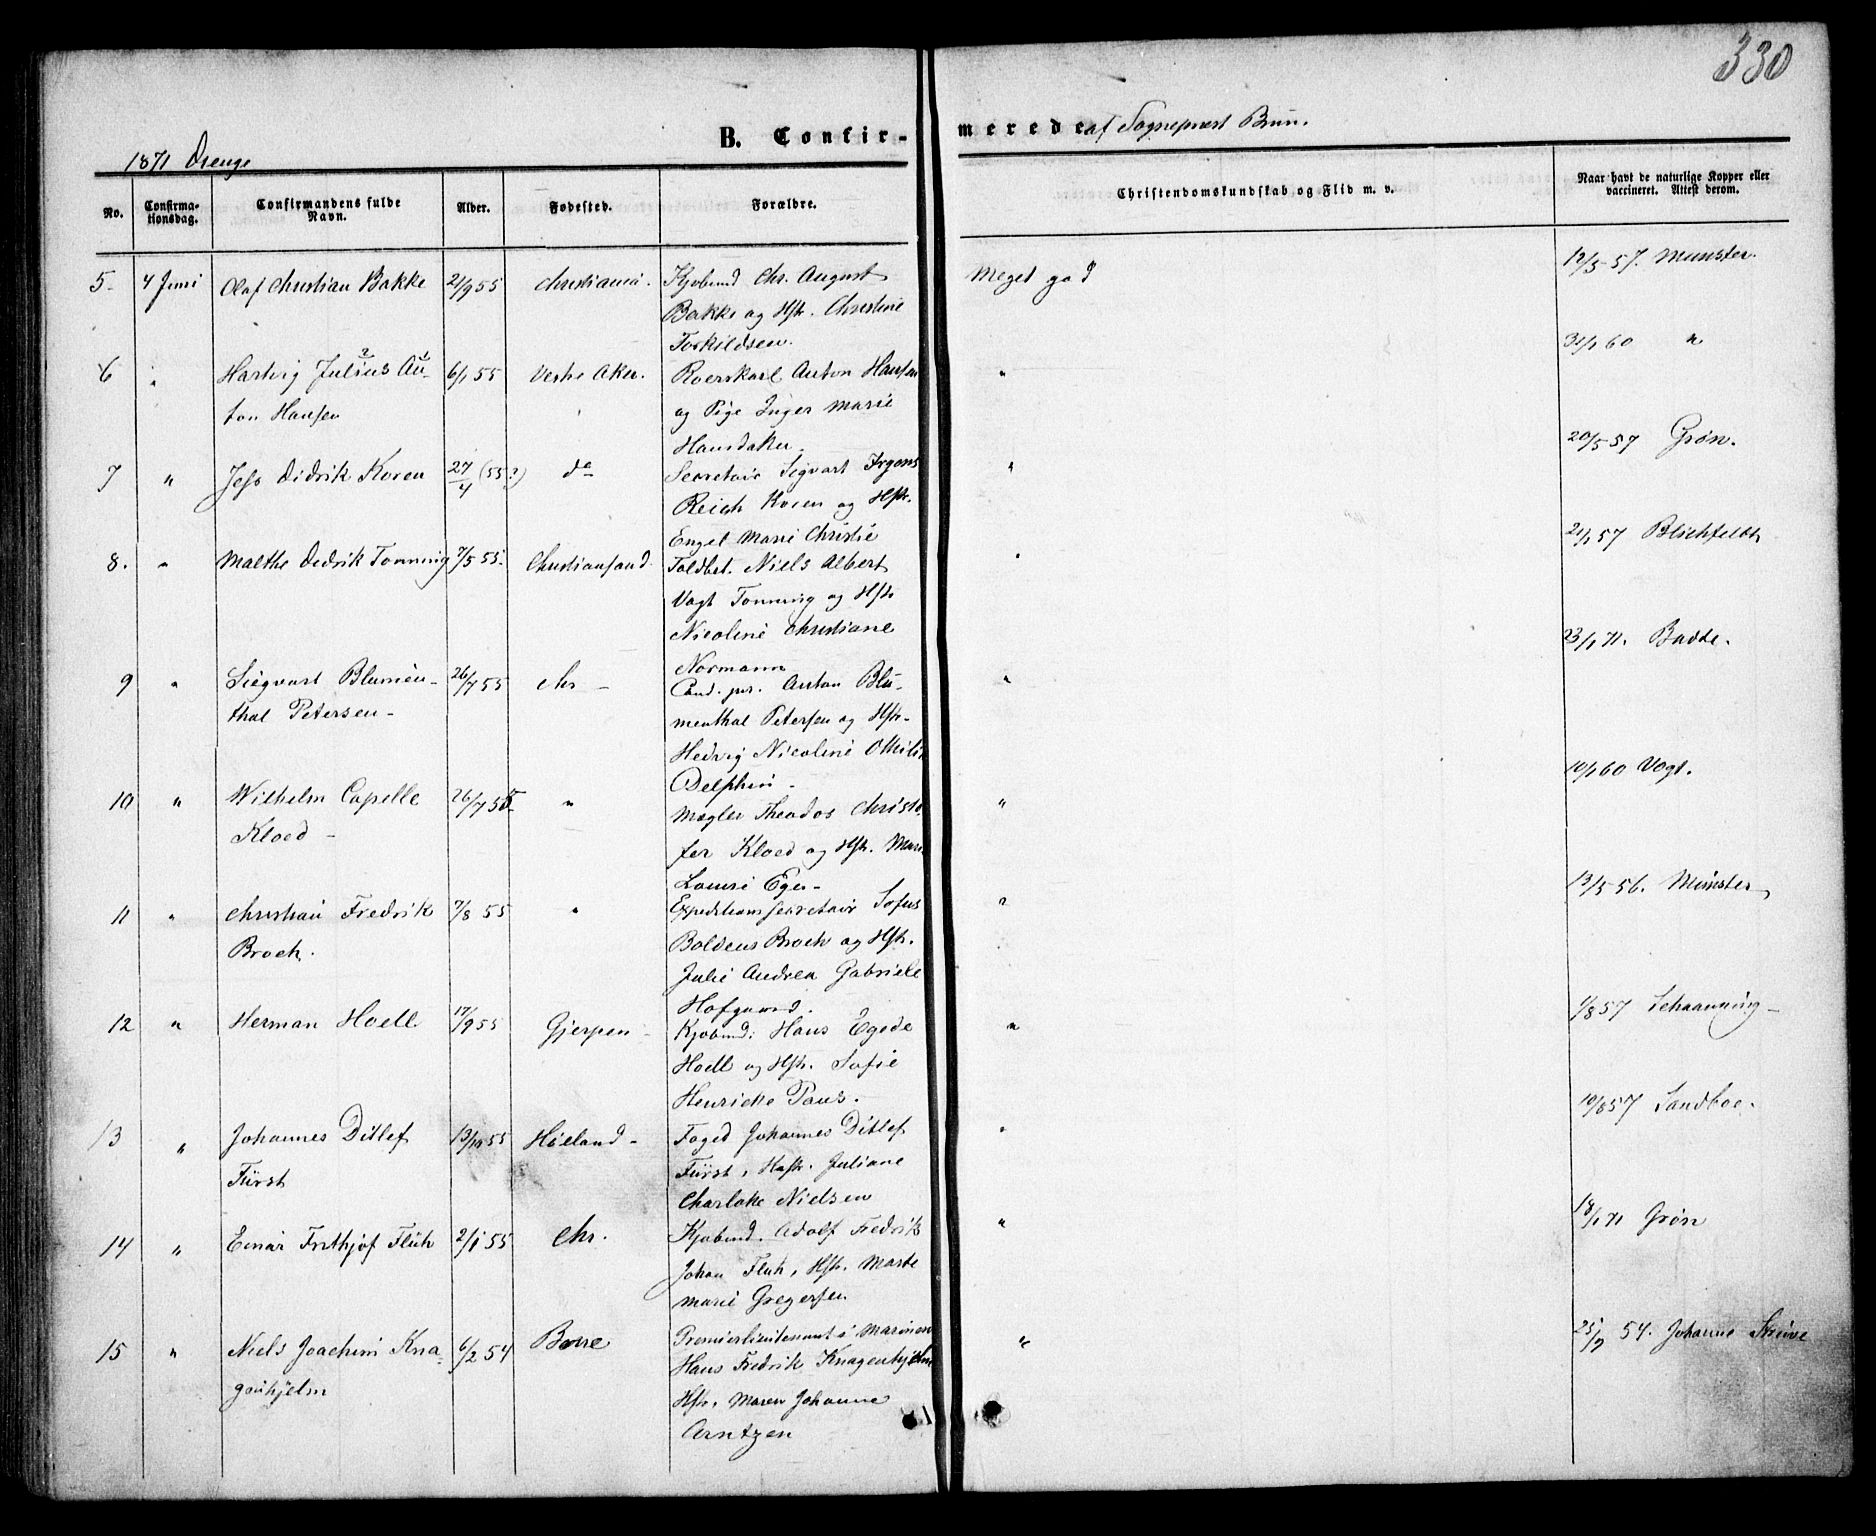 330
1871 Drenge
B. Confirmerede af Sognepræst Brun.
No.
Confirmationsdag.
Confirmandens fulde Navn.
Alder.
Fødested.
Forældre.
Christendomskundskab og Flid m. v.
Naar havt de naturlige Kopper eller vaccineret. Attest derom.
5- 4 Juni Olaf Christian Bakke 21/9 55 Christiania. Kjøbmd Chr. August Meget god 12/5 57. Munster.
Bakke og Hstr. Christine
Torkildsen.
6 " Hartvig Julius An- 6/1 55 Vestre Aker. Roerskarl Anton Hansen " 31/1 60 "
ton Hansen og Pige Inger Marie
Hansdatter.
7 " Jess Didrik Koren 27/4 (55?) do Secretair Sigvart Irgens " 20/5 57 Grøn.
Reich Koren og Hstr.
Engel Marie Christie
8. " Malthe Didrik Tonning 7/5 55. Christiansand Toldbet. Niels Albert " 21/1 57 Blichfeldt
Vogt Tonning og Hstr
Nicoline Christiane
Normann
9 " Siegvart Blumen- 26/7 55 Chr - Cand. jur. Anton Blu- " 23/1 71. Budde.
thal Petersen - menthal Petersen og Hstr.
Hedvig Nicoline Ottilie
Delphin -
10 " Wilhelm Capelle 26/7 55 " Mægler Theodor Christo " 10/1 60 Vogt.
Kloed - fer Kloed og Hstr. Marie
Louise Eger -
11 " Christian Fredrik 7/8 55 " Expeditionssecretair Sofus " 13/5 56. Münster
Broch. Boldeus Broch og Hstr.
Julie Andrea Gabriele
Hofgaard.
12 " Herman Hoell 17/9 55 Gjerpen - Kjøbmd. Hans Egede " 1/8 57 Schaanning -
Hoell og Hstr. Sofie
Henriette Paus.
13 " Johannes Ditlef 13/10 55 Høland - Foged Johannes Ditlef " 10/8 57 Sandboe.
Fürst Fürst, Hstr. Juliane
Charlotte Nielsen
14 " Einar Frithjof Fluh 2/1 55 Chr. Kjøbmd. Adolf Fredrik " 18/1 71 Grøn
Johan Fluh, Hstr. Marte
Marie Gregersen
15 " Niels Joachim Kna- 6/2 54 Borre Premierlieutenant i Marinen " 25/7 54. Johanne
genhjelm Hans Fredrik Knagenhjelm
Hstr. Maren Johanne
Arntzen